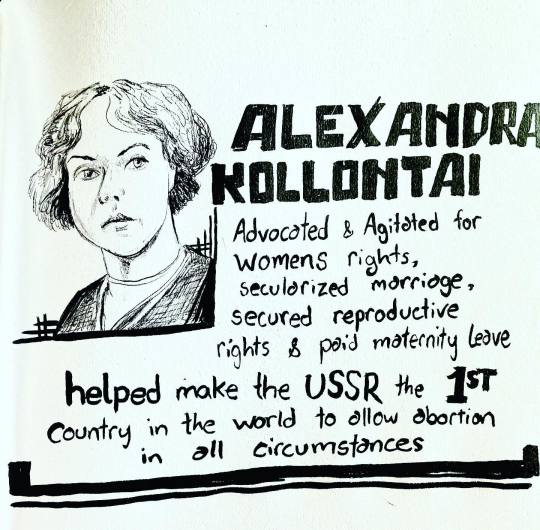 ALEXANDRA
KOLLONTAI
Advocated & Agitated for
womens rights,
secularized marriage,
secured reproductive
rights & paid maternity leave
helped make the USSR the 1ST
Country in the world to allow abortion
in all circumstances